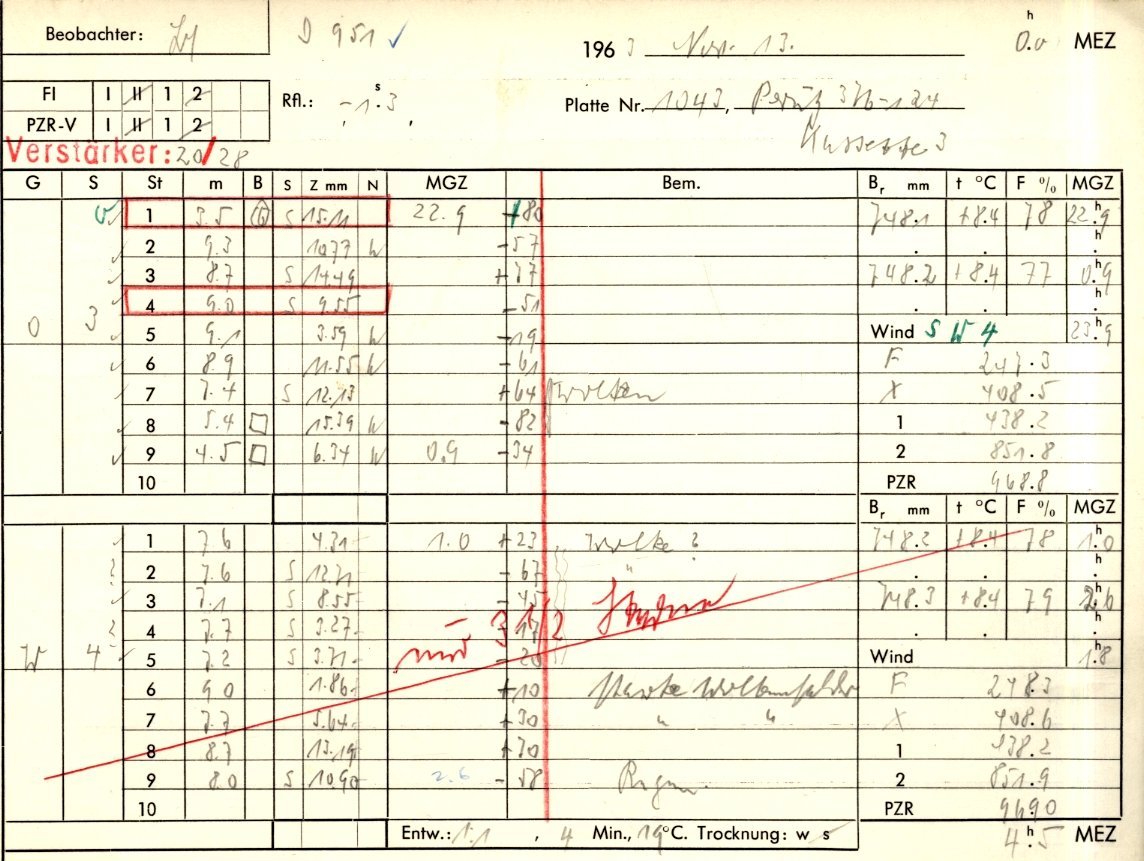 Beobachter:
D 951
196 3 Nov. 13.
0.0 h MEZ
FI I II 1 2
PZR-V I II 1 2
Rfl.: -1 s .3
Platte Nr. 1043, Perutz
Kassette 3
Verstärker: 20/28
G S St m B S Z mm N MGZ Bem. Br mm t °C F % MGZ
1 5.5 S 15.11 22.9 +80 748.1 +8.4 78 22.9 h
2 9.3 10.77 W -57 h
3 8.7 S 14.49 +77 748.2 +8.4 77 0.9 h
4 9.0 S 9.55 -51 h
0 3 5 9.1 3.59 W -19 Wind S W 4 23.9 h
6 8.9 11.55 W -61 F 247.3
7 7.4 S 12.13 +64 Wolken X 408.5
8 5.4 15.39 W -82 1 438.2
9 4.5 6.34 W 0.9 -34 2 851.8
10 PZR 968.8
Br mm t °C F % MGZ
1 7.6 4.31 1.0 +23 Wolke ? 748.2 +8.4 78 1.0 h
2 7.6 S 12.71 -67 " h
3 7.1 S 8.55 -45 748.3 +8.4 79 2.6 h
4 7.7 S 3.27 -17 h
nur 3 1/2
W 4 5 7.2 S 3.71 -20 Wind 1.8 h
6 9.0 1.86 +10 starke Wolkenfelder F 248.3
7 7.7 5.64 +30 " " X 408.6
8 8.7 13.19 +70 1 438.2
9 8.0 S 10.90 2.6 -58 Regen. 2 851.9
10 PZR 969.0
Entw.: 1:1, 4 Min., 19 °C. Trocknung: w s
4.5 h MEZ